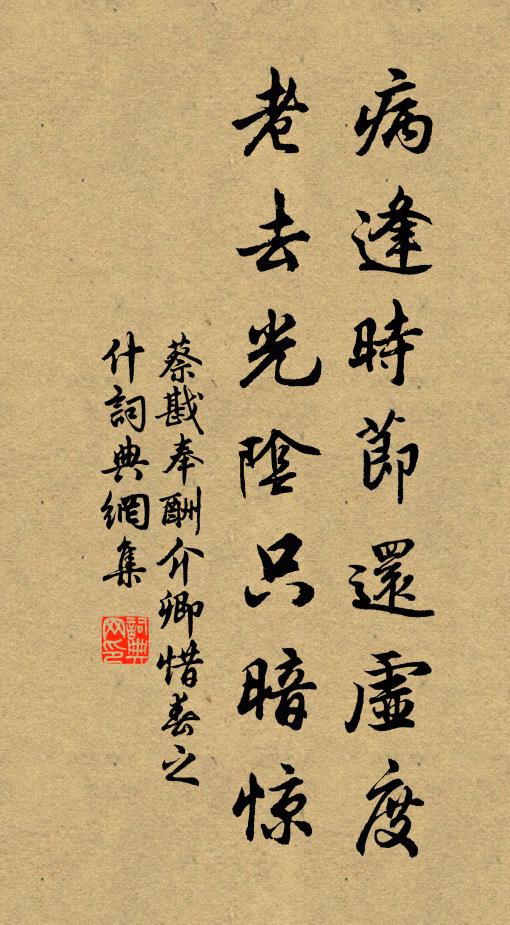 病逢時節還虛度
老去光陰只暗惊
蔡戡奉酬介卿惜春之
什詞典網集
詞典
网印